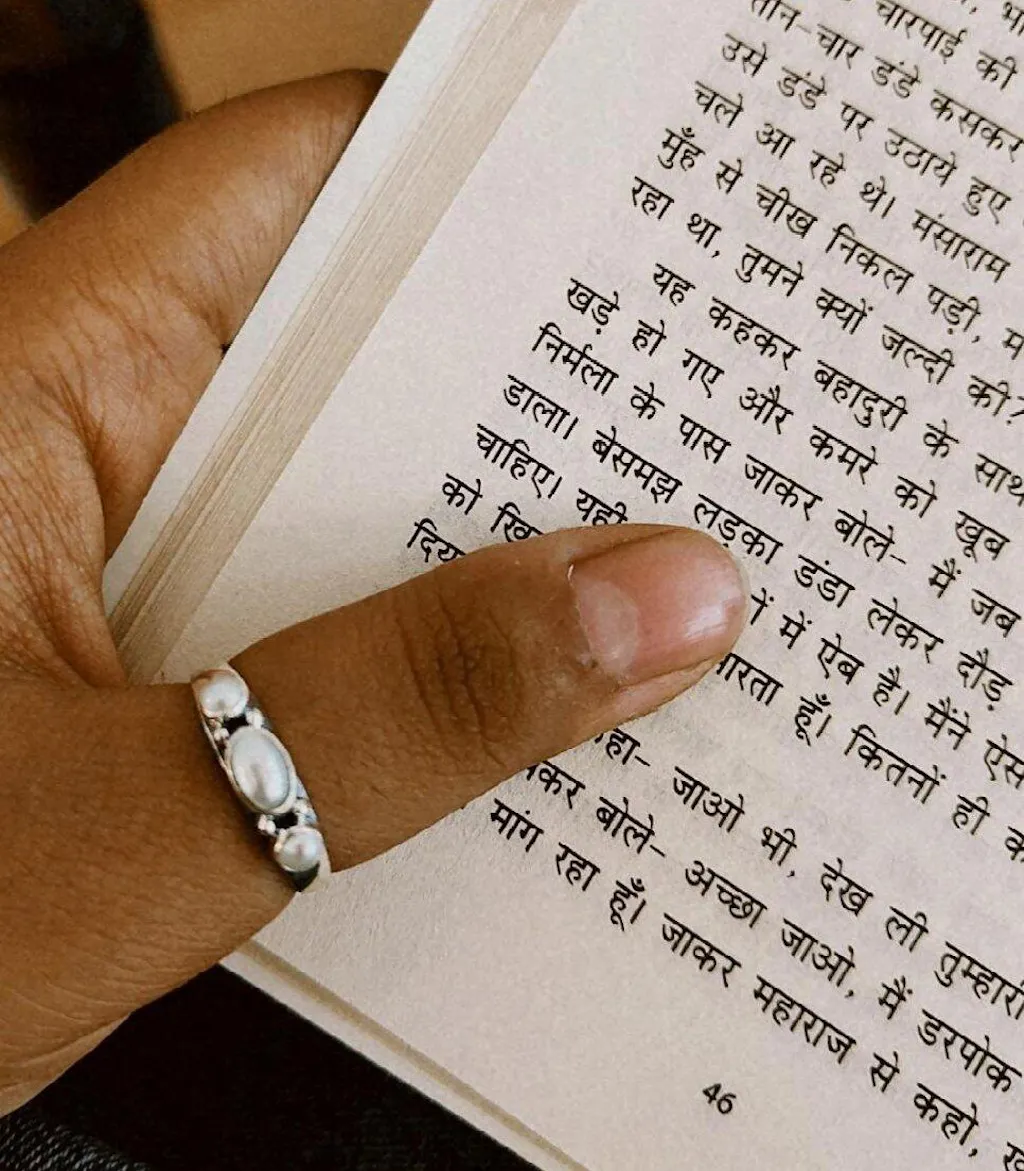 चारपाई की
तीन-चार डंडे कसकर
उसे डंडे पर उठाये हुए
चले आ रहे थे। मंसाराम
मुँह से चीख निकल पड़ी,
रहा था, तुमने क्यों जल्दी की?
यह कहकर बहादुरी के साथ
खड़े हो गए और कमरे को खूब
निर्मला के पास जाकर बोले- मैं जब
डाला। बेसमझ लड़का डंडा लेकर दौड़
चाहिए। यही में ऐब है। मैंने ऐस
को हूँ। कितनों ही
जाओ भी, देख ली तुम्हारी
बोले- अच्छा जाओ, मैं डरपोक
मांग रहा हूँ। जाकर महाराज से कहो,
46